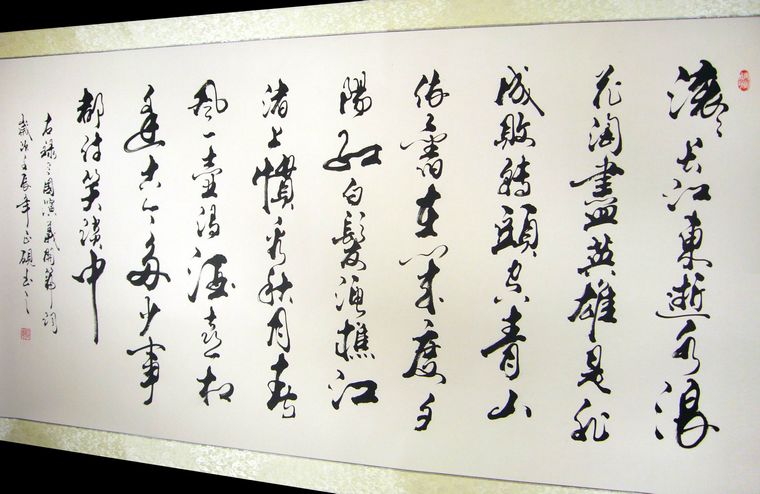 滚々长江東逝水浪
花淘盡英雄是非
成敗轉頭空青山
依舊在幾度夕
陽紅白髮漁樵江
渚上慣看秋月春
風一壺濁酒喜相
逢古今多少事
都付笑談中
右録三國演義開篇词
歲次壬辰年正硯书之